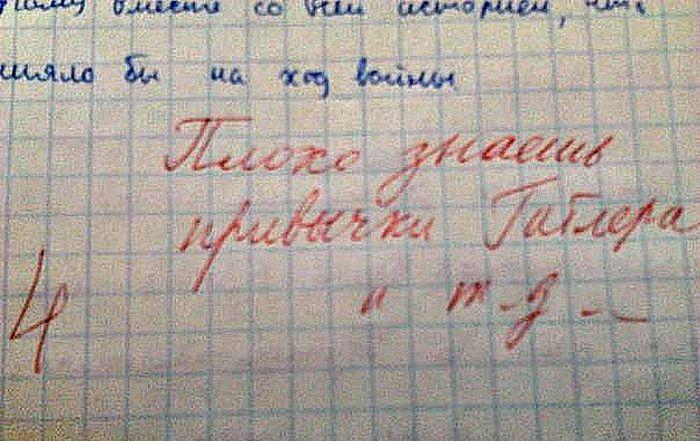 вместе со всей историей,
бы на ход войны
Плохо знаешь
привычки Гатлера
4
и т-д-